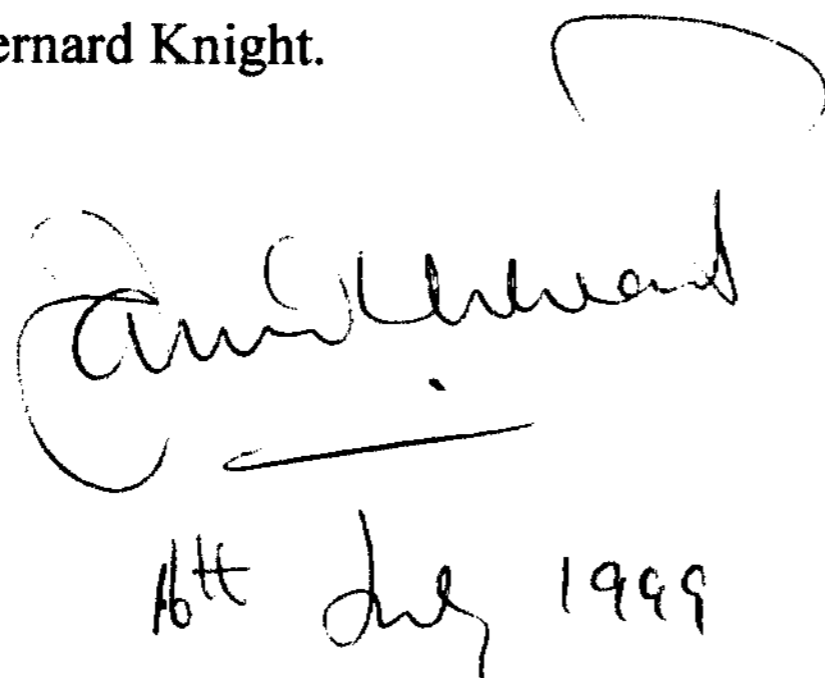 ernard Knight.
16th July 1999